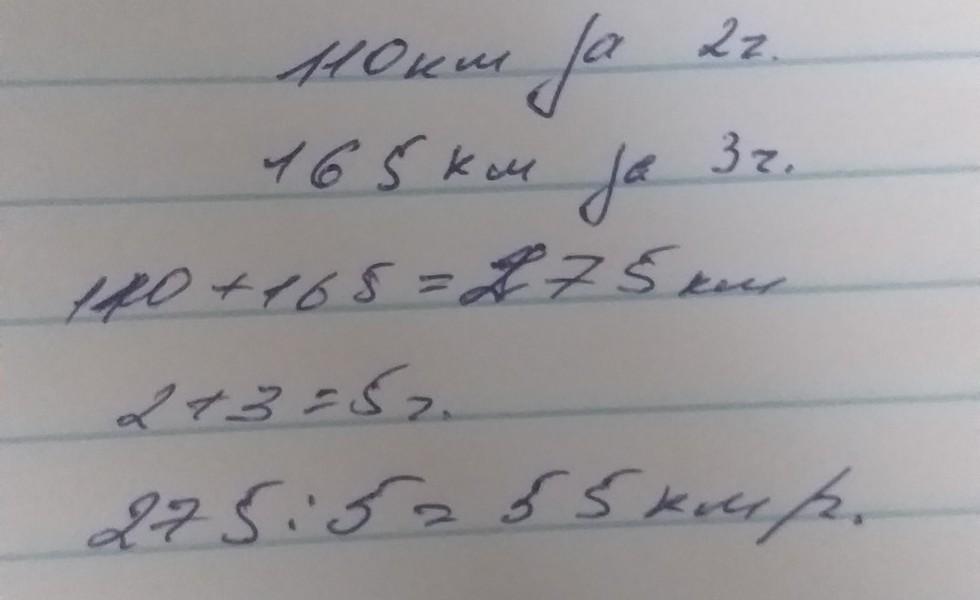 110 км за 2 ч.
165 км за 3 ч.
110 + 165 = 275 км
2 + 3 = 5 ч.
275 : 5 = 55 км/ч.